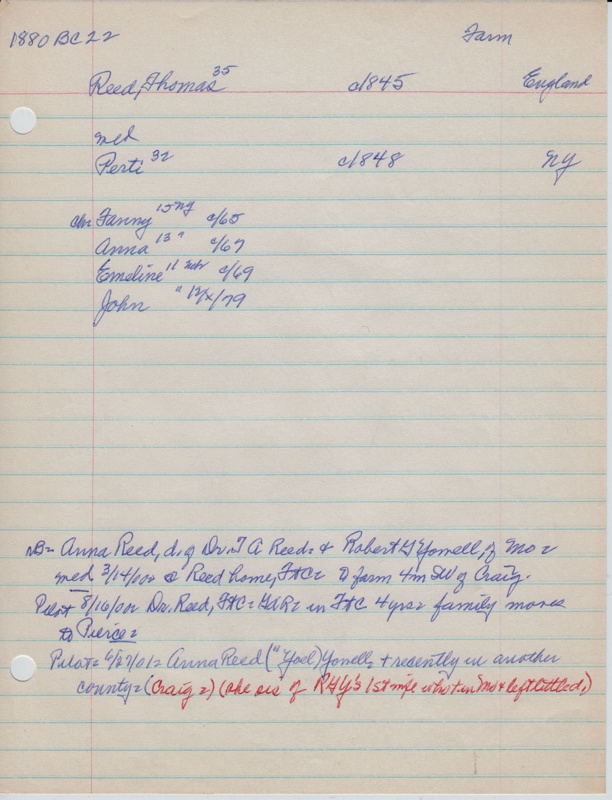 1880 BC 22 Farm
Reed, Thomas 35 c/1845 England
med
Perti 32 c/1848 NY
chr Fanny 15 NY c/65
Anna 13 " c/67
Emeline 11 Nebr c/69
John " 12/x/79
NB= Anna Reed, d. of Dr. T A Reed= & Robert Yomell, of Mo=
med 3/14/00= @ Reed home, F&C= to farm 4m SW of Craig.
Pilot 8/16/00= Dr. Reed, F&C= GAR= in F&C 4yrs= family moves
to Pierce=
Pilot= 6/27/01= Anna Reed (" Yoel) Yomell, + recently in another
county= (Craig=) (she sis of RHY's 1st wife who in Mo & left little d.)